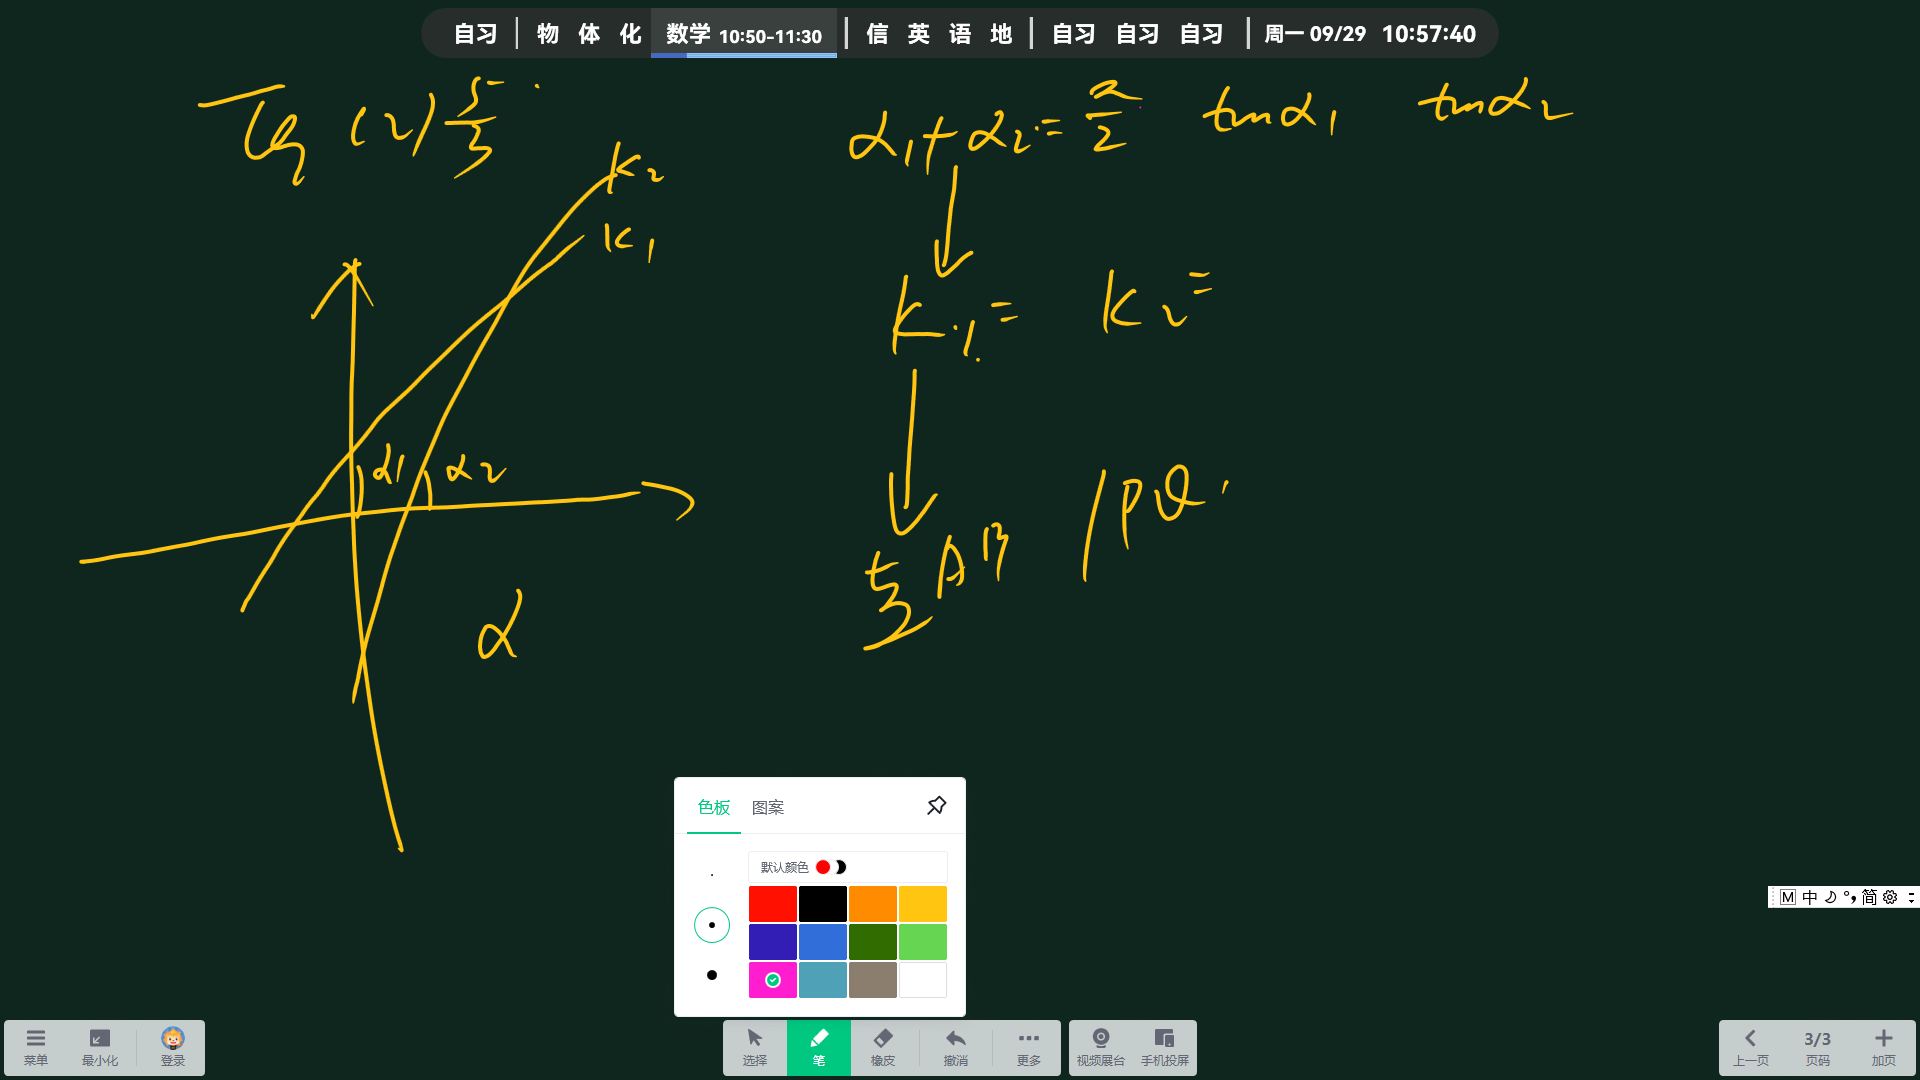 自习 | 物 体 化 数学 10:50-11:30 | 信 英 语 地 | 自习 自习 自习 | 周一 09/29 10:57:40
(2) 5/3
α₁+α₂= π/2 tanα₁ tanα₂
K₂
K₁
K₁= K₂=
α₁ α₂
AB |PQ|
α
色板 图案
默认颜色
M 中 简
菜单 最小化 登录 选择 笔 橡皮 撤消 更多 视频展台 手机投屏 上一页 3/3 页码 加页